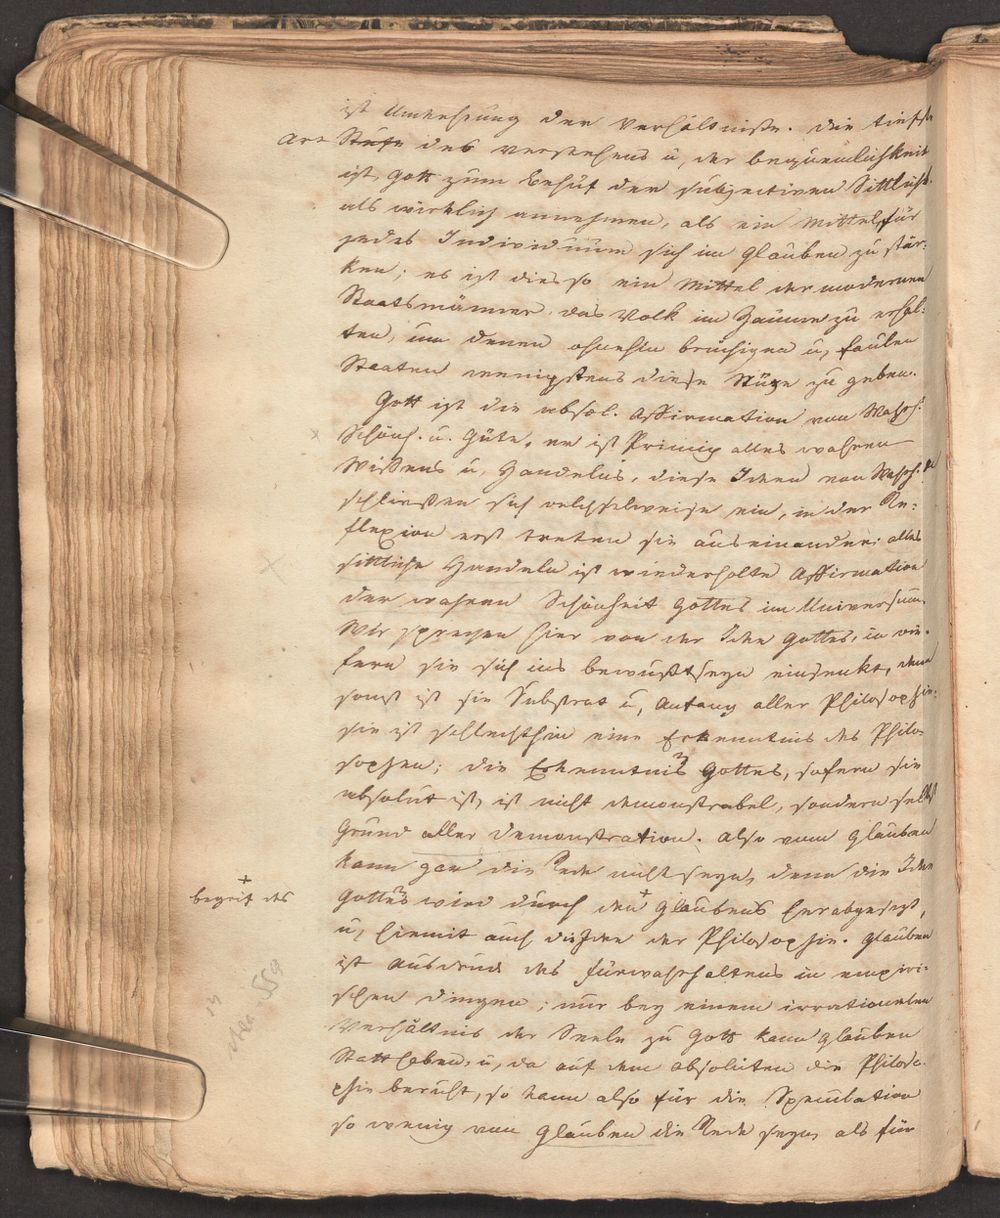 ist Umkehrung der Verhältniße. die tiefste
Art Stufe des verstehens u, der bequemlichkeit
ist, Gott zum Behuf der subjectiven Sittlichk.
als wirklich annehmen, als ein Mittel, für
jedes Individuum sich im Glauben zu stär-
ken; es ist dies so ein Mittel der modernen
Staatsmänner, das Volk im Zaume zu erhal-
ten, um denen ohnehin brüchigen u, faulen
Staaten wenigstens diese Stüze zu geben.
Gott ist die absol. Affirmation von Wahrh.
Schönh. u. Güte, er ist Princip alles wahren
Wißens u, Handelns, diese Ideen von Wahrh.
schließen sich wechselweise ein, in der Re-
flexion erst treten sie auseinander; alles
sittliche Handeln ist wiederholte Affirmation
der wahren Schönheit Gottes im Universum.
Wir sprechen hier von der Idee Gottes, in wie-
fern sie sich ins bewußtseyn einsenkt, denn
sonst ist sie Substrat u, Anfang aller Philosophie.
sie ist schlechthin eine Erkenntnis des Philo-
sophen; die Erkenntnis Gottes, sofern sie
absolut ist, ist nicht demonstrabel, sondern selbst
Grund aller Demonstration. Also vom Glauben
kann gar die Rede nicht seyn, denn die Idee
Gottes wird durch den + Glaubens herabgesezt,
+
begrif des
u, hiemit auch die Idee der Philosophie. Glauben
ist Ausdruck des fürwahrhaltens in empiri-
schen Dingen; nur bey einem irrationalen
Verhältnis der Seele zu Gott kann Glauben
Statt haben, u, da auf dem absoluten die Philoso-
phie beruht, so kann also für die Speculation
so wenig vom Glauben die Rede seyn, als für